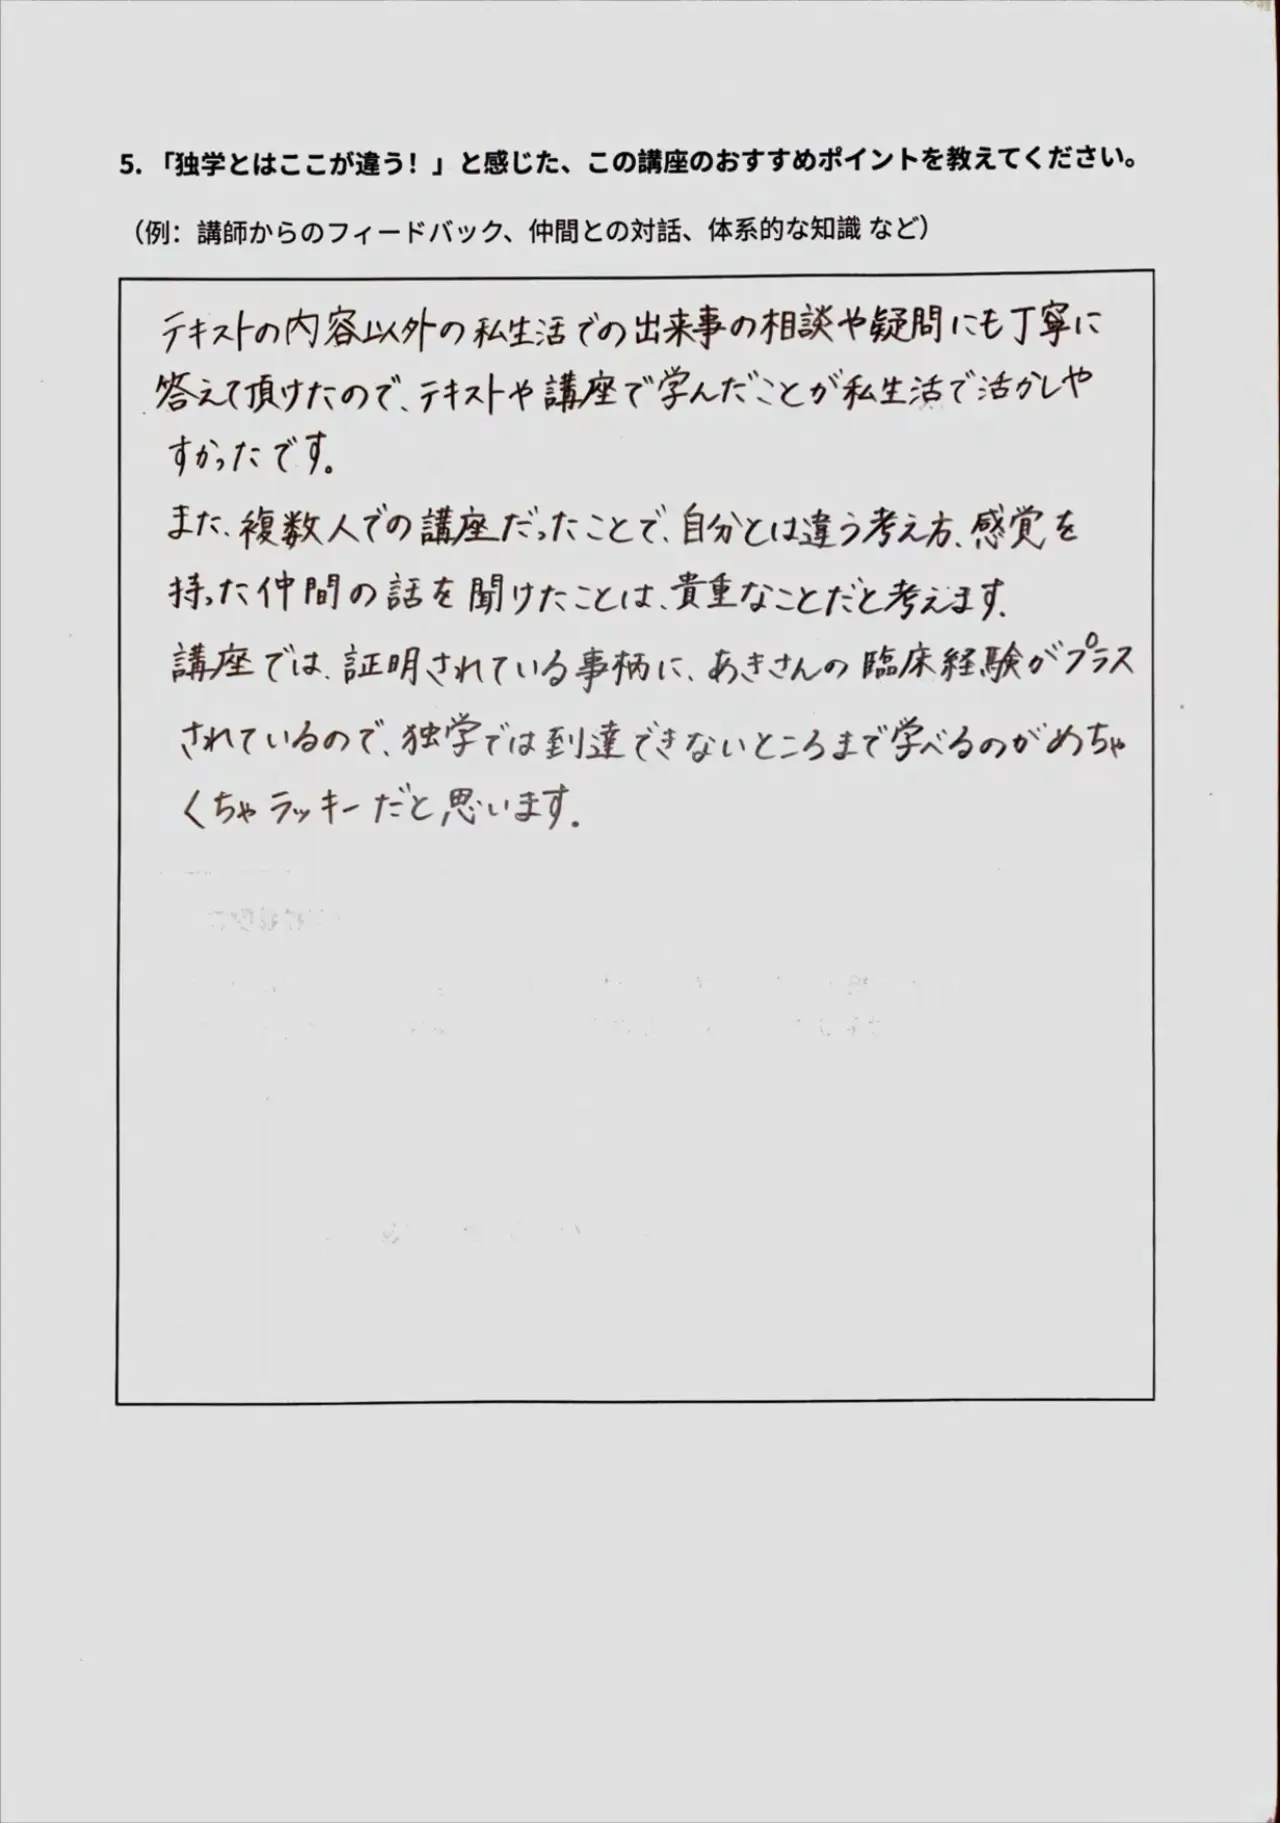 5. 「独学とはここが違う！」と感じた、この講座のおすすめポイントを教えてください。
（例：講師からのフィードバック、仲間との対話、体系的な知識 など）
テキストの内容以外の私生活での出来事の相談や疑問にも丁寧に
答えて頂けたので、テキストや講座で学んだことが私生活で活かしや
すかったです。
また、複数人での講座だったことで、自分とは違う考え方、感覚を
持った仲間の話を聞けたことは、貴重なことだと考えます。
講座では、証明されている事柄に、あきさんの臨床経験がプラス
されているので、独学では到達できないところまで学べるのがめちゃ
くちゃラッキーだと思います。